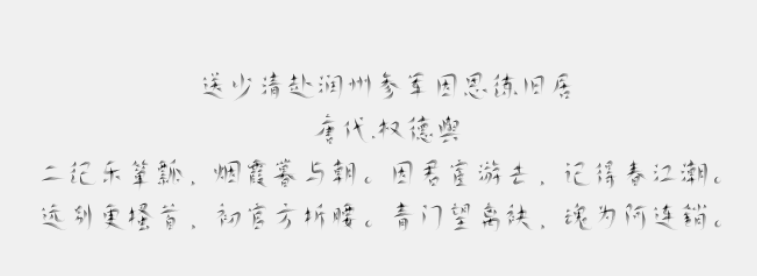 送少清赴润州参军因思练旧居
唐代.权德舆
二纪乐箪瓢，烟霞暮与朝。因君宦游去，记得春江潮。
远别更搔首，初官方折腰。青门望离袂，魂为阿连销。